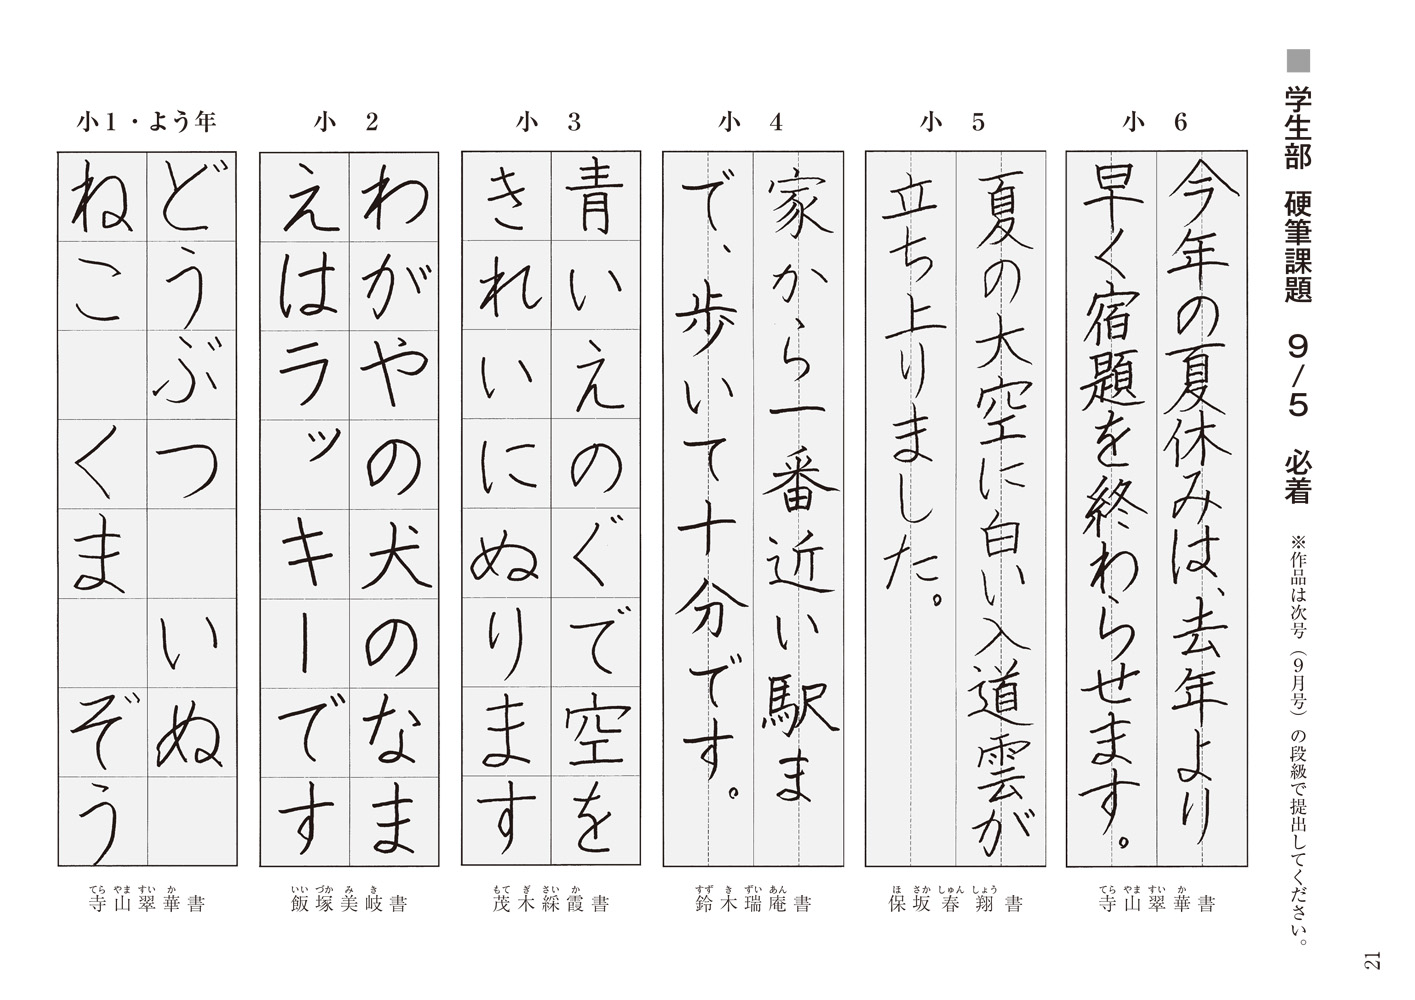 ■学生部 硬筆課題 9/5 必着 ※作品は次号(9月号)の段級で提出してください。
小 6
今年の夏休みは、去年より
早く宿題を終わらせます。
寺山翠華書
てらやますいか
小 5
夏の大空に白い入道雲が
立ち上りました。
保坂春翔書
ほさかしゅんしょう
小 4
家から一番近い駅ま
で、歩いて十分です。
鈴木瑞庵書
すずきずいあん
小 3
青いえのぐで空を
きれいにぬります
茂木綵霞書
もてぎさいか
小 2
わがやの犬のなま
えはラッキーです
飯塚美岐書
いいづかみき
小1・よう年
どうぶつ いぬ
ねこ くま ぞう
寺山翠華書
てらやますいか
21